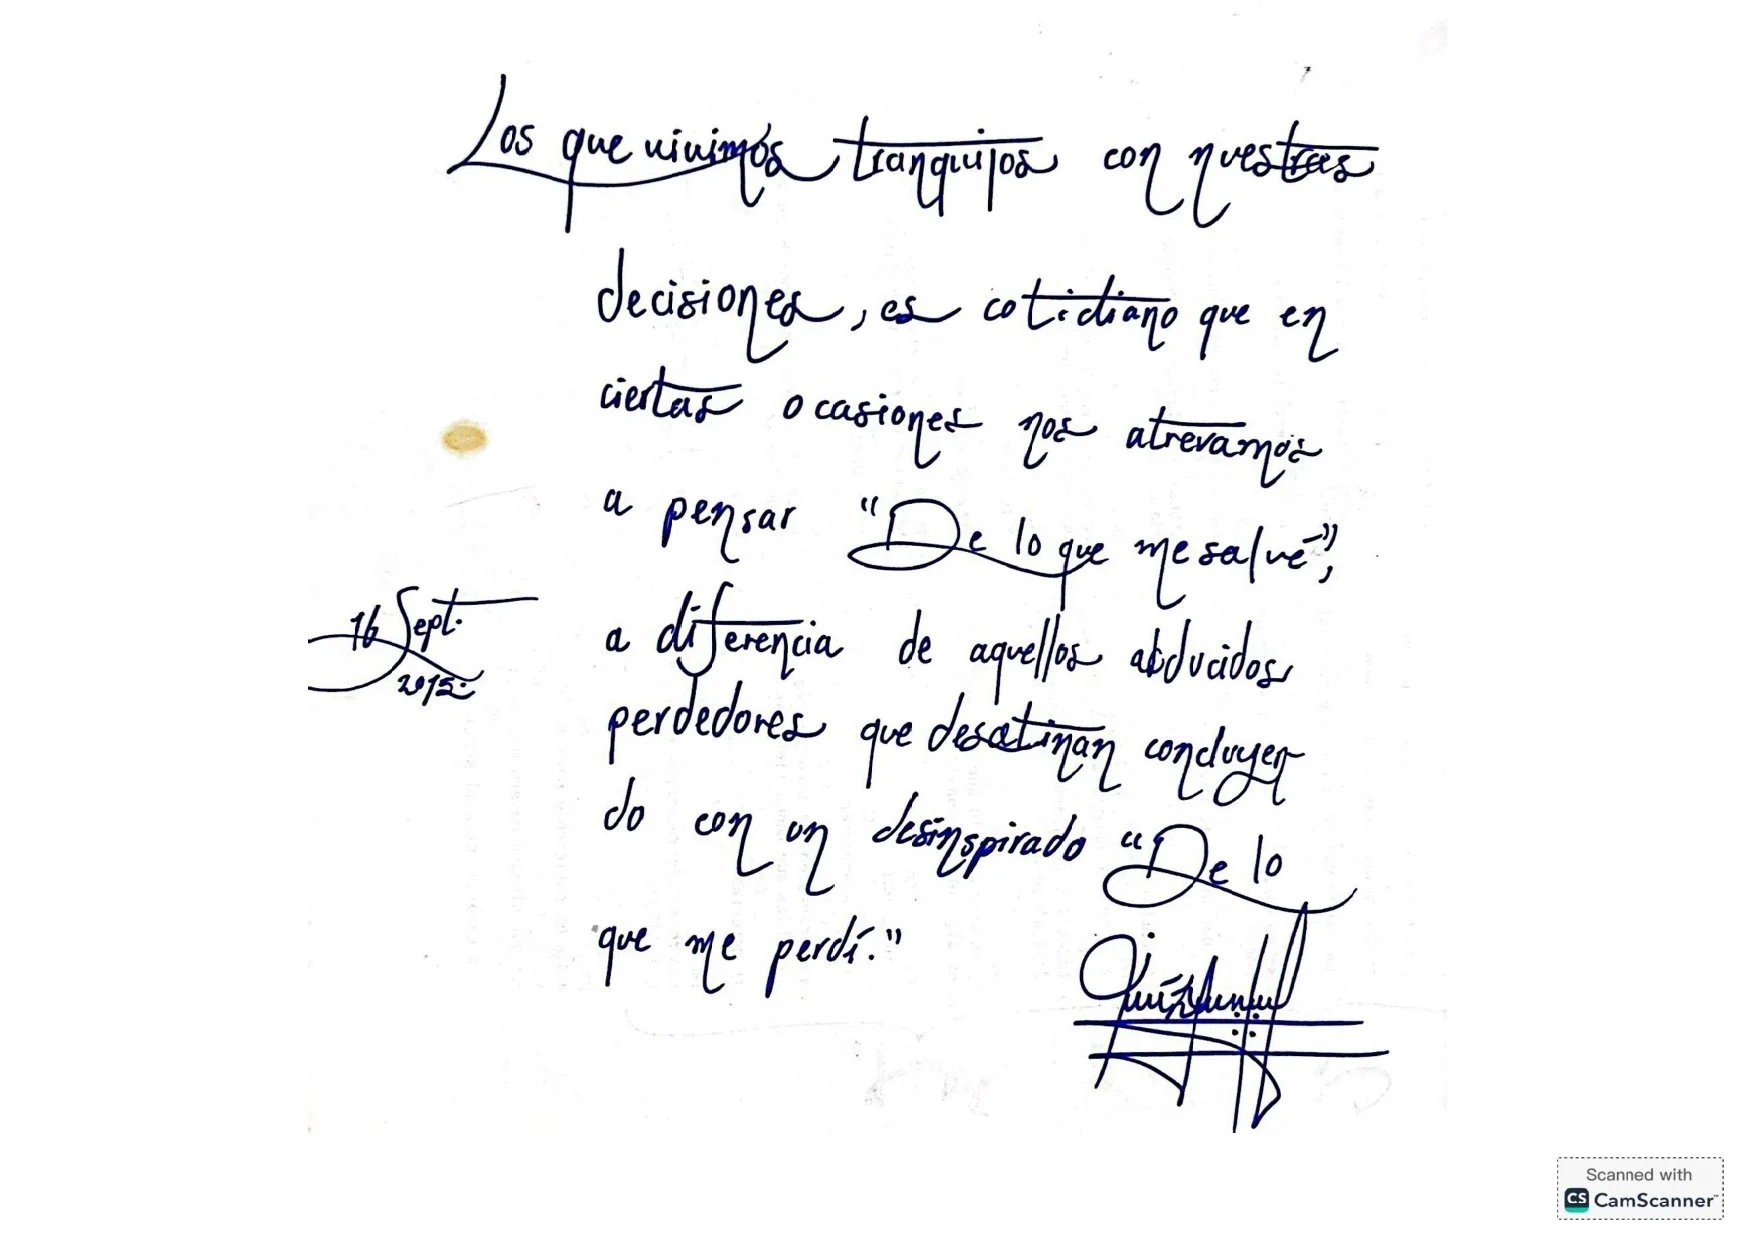 Los que vivimos tranquilos con nuestras
decisiones, es cotidiano que en
ciertas ocasiones nos atrevamos
a pensar "De lo que me salvé",
16 Sept.
2015.
a diferencia de aquellos abducidos
perdedores que desatinan concluyen
do con un desinspirado "De lo
que me perdí."
Scanned with
CS CamScanner